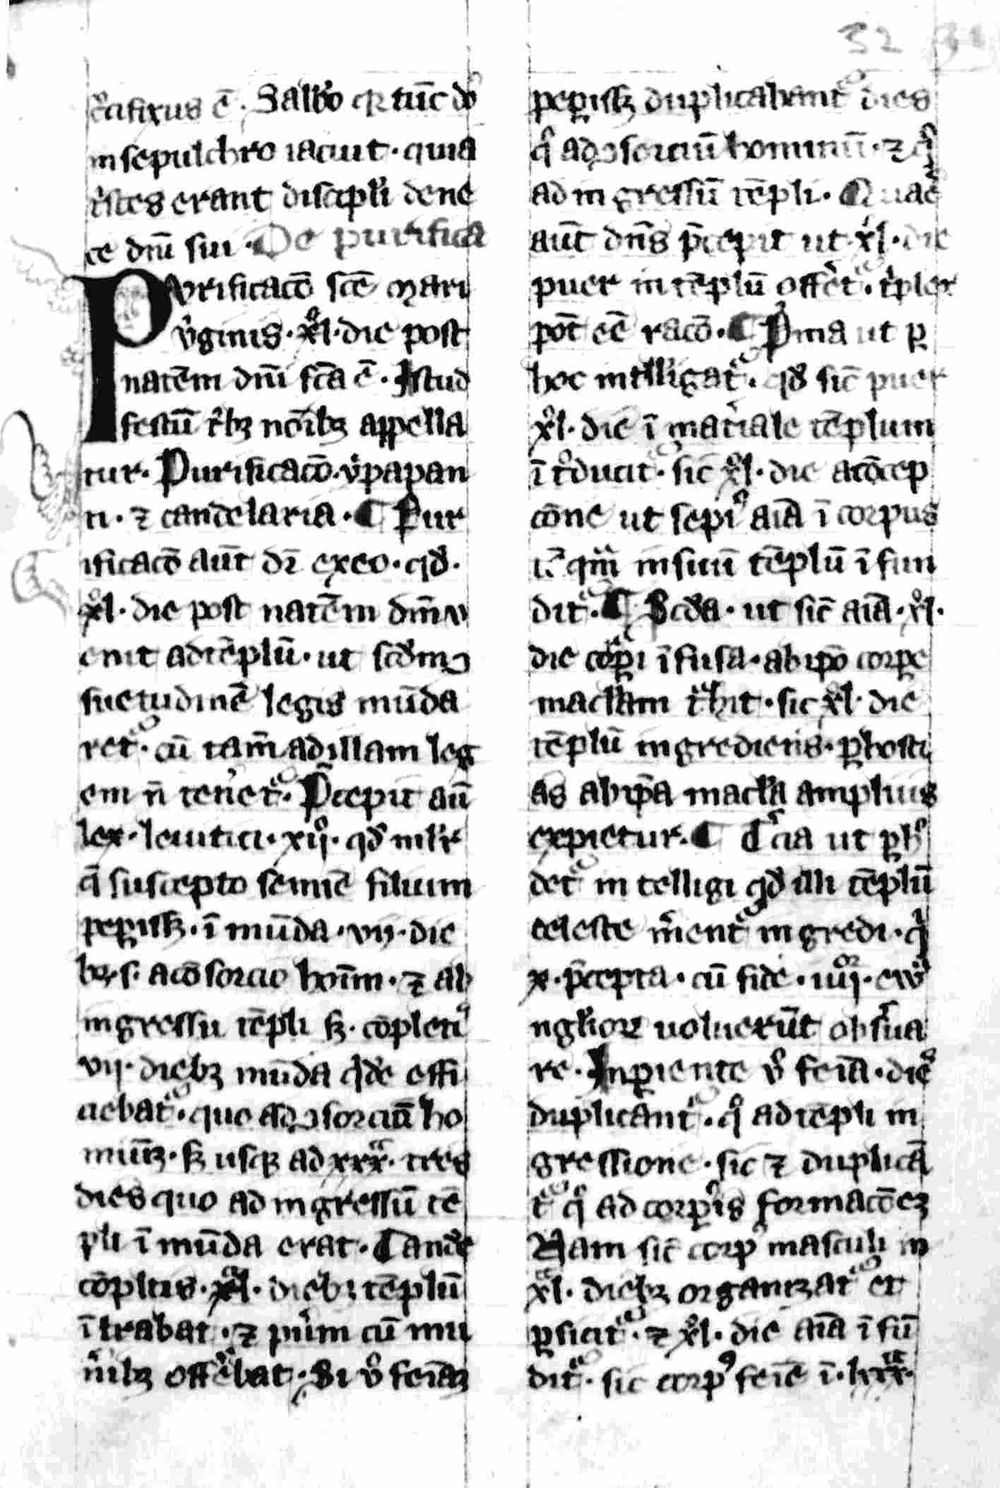 32 31
c̾cifixus ē. Sabb̾o q̱ tūc dn̄s
in sepulchro iacuit. quia
t̾stes erant discipl̾i de ne
ce dn̄i sui. De purifica
Purificacō scē Mari
v̾ginis. xl. die post
natēm dn̄i fc̄a ē. Istud
festū t̾bꝫ noībꝫ appella
tur. Purificacō. ypapan
ti. ⁊ candelaria. ¶ Pur
ificacō aūt dr̄ ex eo. qd̾.
xl. die post natēm dn̄i v
enit ad tēplū. ut scd̾m ꝯ
suetudinē legis mūda
ret᷑. cū tam̄ ad illam leg
em n̄ tener̾et᷑. P̄cepit aū
lex. leuitici. xij. qd̾ mul̾r
q̄ suscepto semīe filium
pepissꝫ. īmūda. vij. die
bꝫ. s. a cōsorcio hoīm. ⁊ ab
ingressu tēpli sꝫ. cōpletis
vij. diebꝫ mūda q̾de effi
ciebat᷑. quo ad ꝯsorciū ho
minū. sꝫ usqꝫ ad xxx. tres
dies quo ad ingressū tē
pli īmūda erat. Tandē
cōpltis. xl. diebꝫ tēplū
ītrabat. ⁊ pu̾m cū mu
n̾ibꝫ offe̾bat. Si v̾o feīaꝫ
peꝑissꝫ duplicabant᷑ dies
q̊ ad ꝯsorciū hominū. ⁊ q̊
ad ingressū tēpli. Quaē
aūt dn̄s p̄cepit ut xl. die
puer in tēplū offer̾et᷑. t̾plex
pōt eē racō. ¶ P̾ma ut ꝑ
hoc intelligat᷑. qd̾ sic̄ puer
xl. die ī mat̾iale tēplum
īt̾ducit᷑. sic xl. die a cōcep
cōne ut sepi᷒ aīa ī corpus
tāqm̄ in suū tēplū īfun
dit᷑. ¶ Scd̾a. ut sic̄ aīa. xl.
die corꝑi īfusa. ab ipō corpe
maclam t̾hit. sic xl. die
tēplū ingrediens. ꝑ hosti
as ab ipā macl̾a amplius
expietur. ¶ T̾cia ut ꝑ h̾
det᷑ intelligi qd̾ illi tēplū
celeste m̾ent᷑ ingredi. q̾
x. p̄cepta. cū fide. iiij. ewa
ngl̾ioꝝ uoluerūt obs̾ua
re. In pariente v̾o feīa. dies
duplicant᷑. q̊ ad tēpli in
gressione. sic ⁊ duplicā
t᷑ q̊ ad corꝑis formacōeꝫ
Nam sic̄ corp᷒ masculi in
xl. diebꝫ organizat᷑ et
ꝑficit᷑. ⁊ xl. die aīa īfū
dit᷑. sic corp᷒ feīe ī. lxxx.